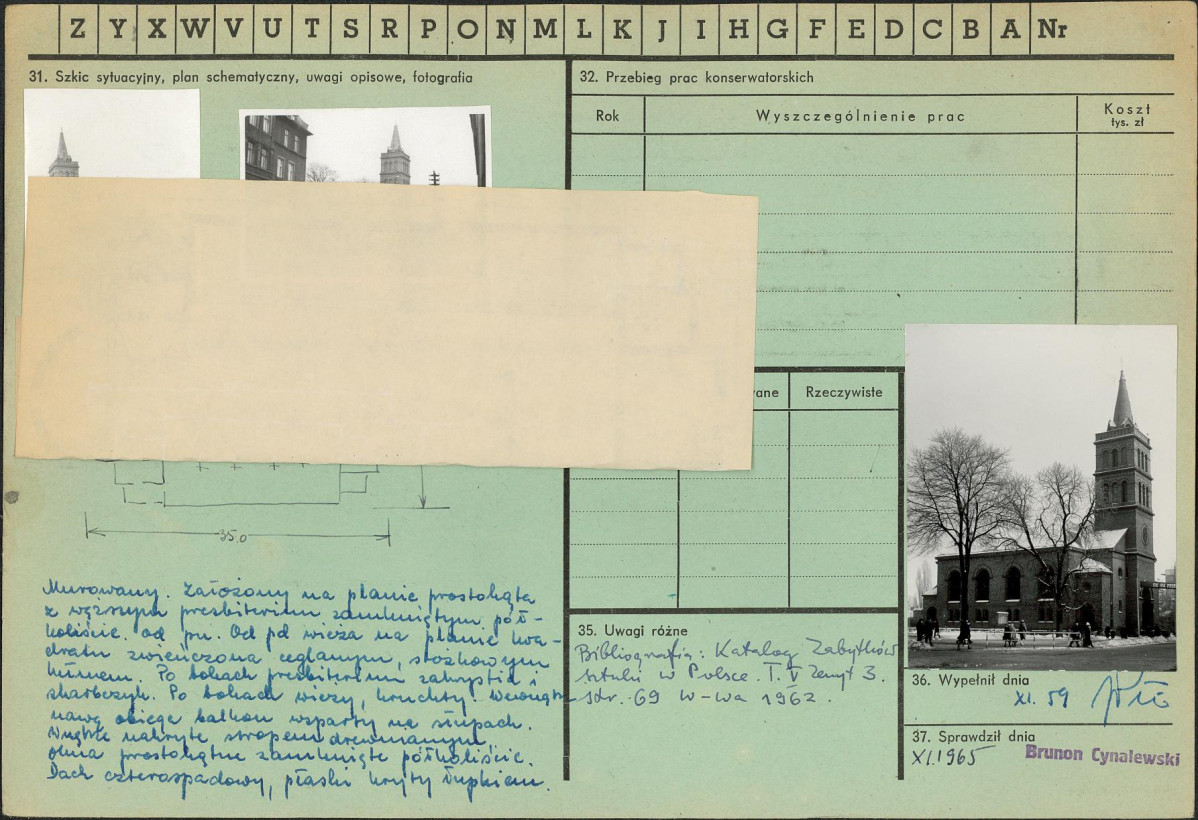 Z Y X W V U T S R P O N M L K J I H G F E D C B A Nr
31. Szkic sytuacyjny, plan schematyczny, uwagi opisowe, fotografia
35.0
Murowany. Założony na planie prostokąta
z węższym presbiterium zamkniętym pół-
koliście. od pn. Od pd wieża na planie kwa-
dratu zwieńczona ceglanym, stożkowym
hełmem. Po bokach presbiterium zakrystia i
skarbczyk. Po bokach wieży, kruchty. Wewnątrz
nawę obiega balkon wsparty na słupach.
Wnętrze nakryte stropem drewnianym
okna prostokątne zamknięte półkoliście.
Dach czterospadowy, płaski kryty łupkiem.
32. Przebieg prac konserwatorskich
Rok Wyszczególnienie prac Koszt
tys. zł
wane Rzeczywiste
35. Uwagi różne
Bibliografia: Katalog Zabytków
Sztuki w Polsce. T. V Zeszyt 3.
str. 69 W-wa 1962.
36. Wypełnił dnia
XI. 59
37. Sprawdził dnia
XI.1965 Brunon Cynalewski